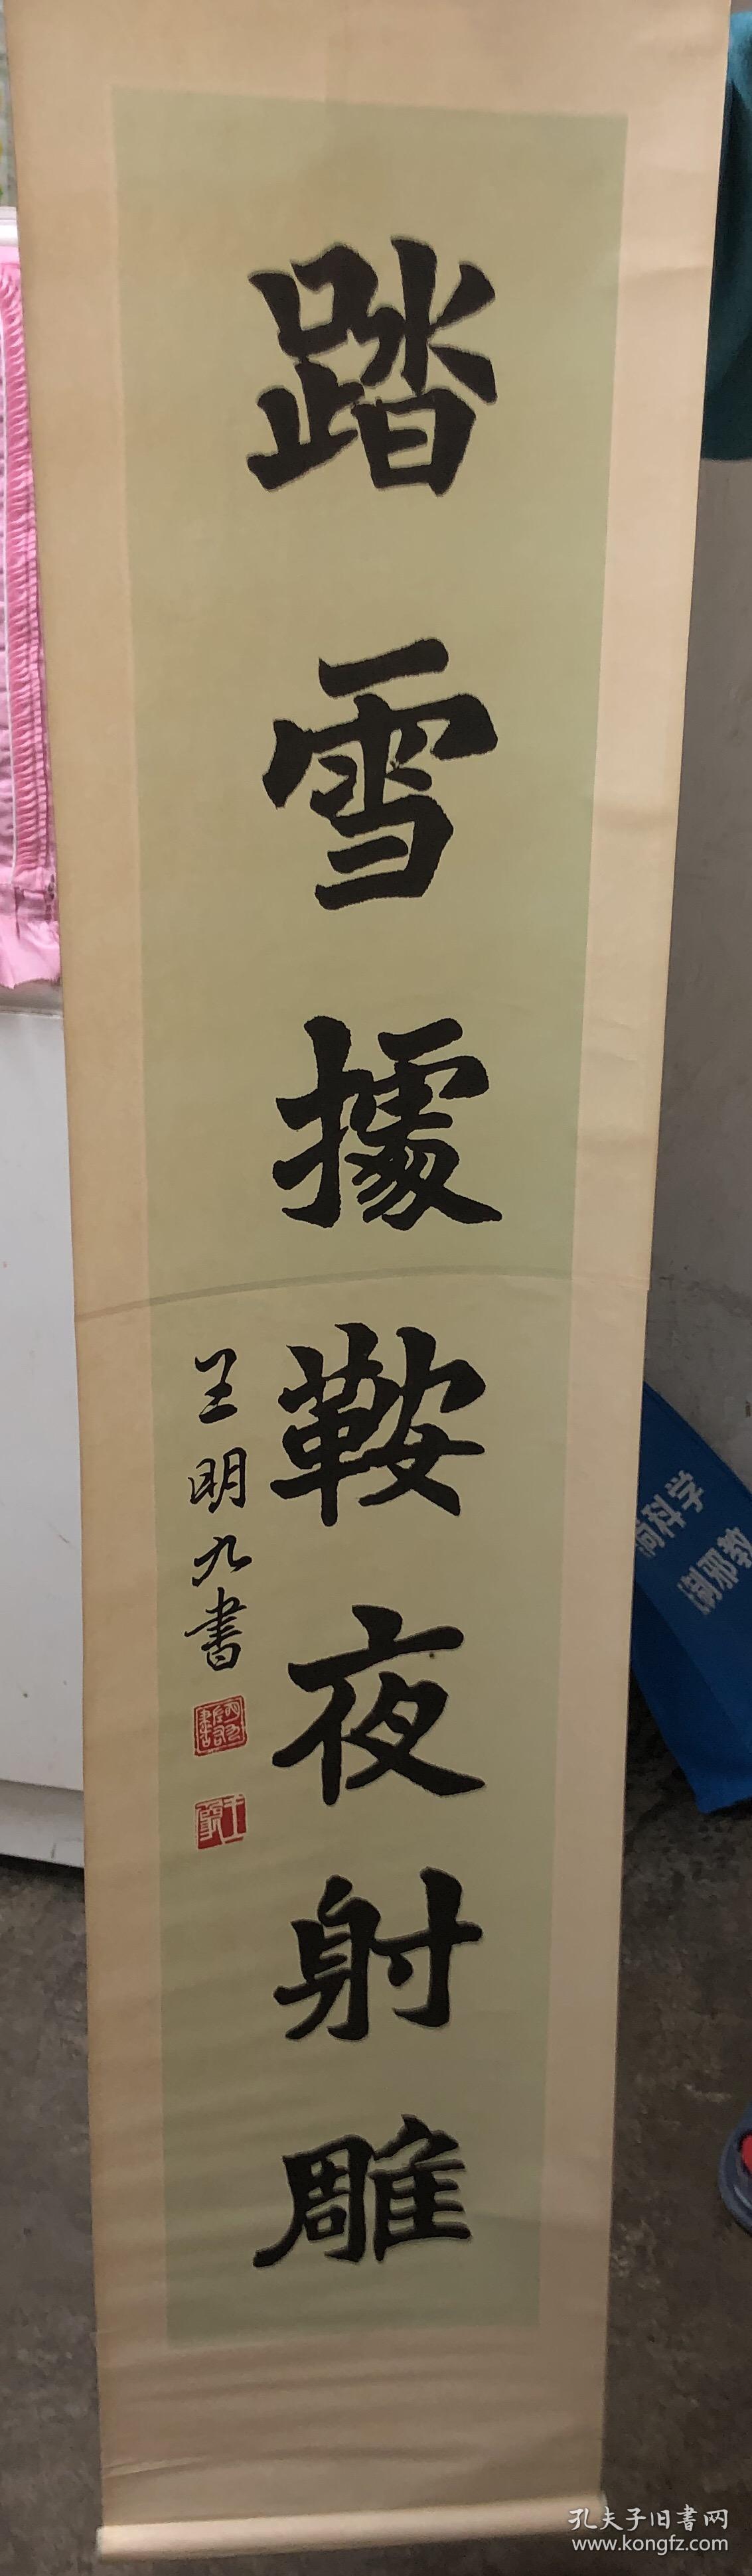 踏雪據鞍夜射雕
王明九書
尚科学
邪教
孔夫子旧書网
www.kongfz.com